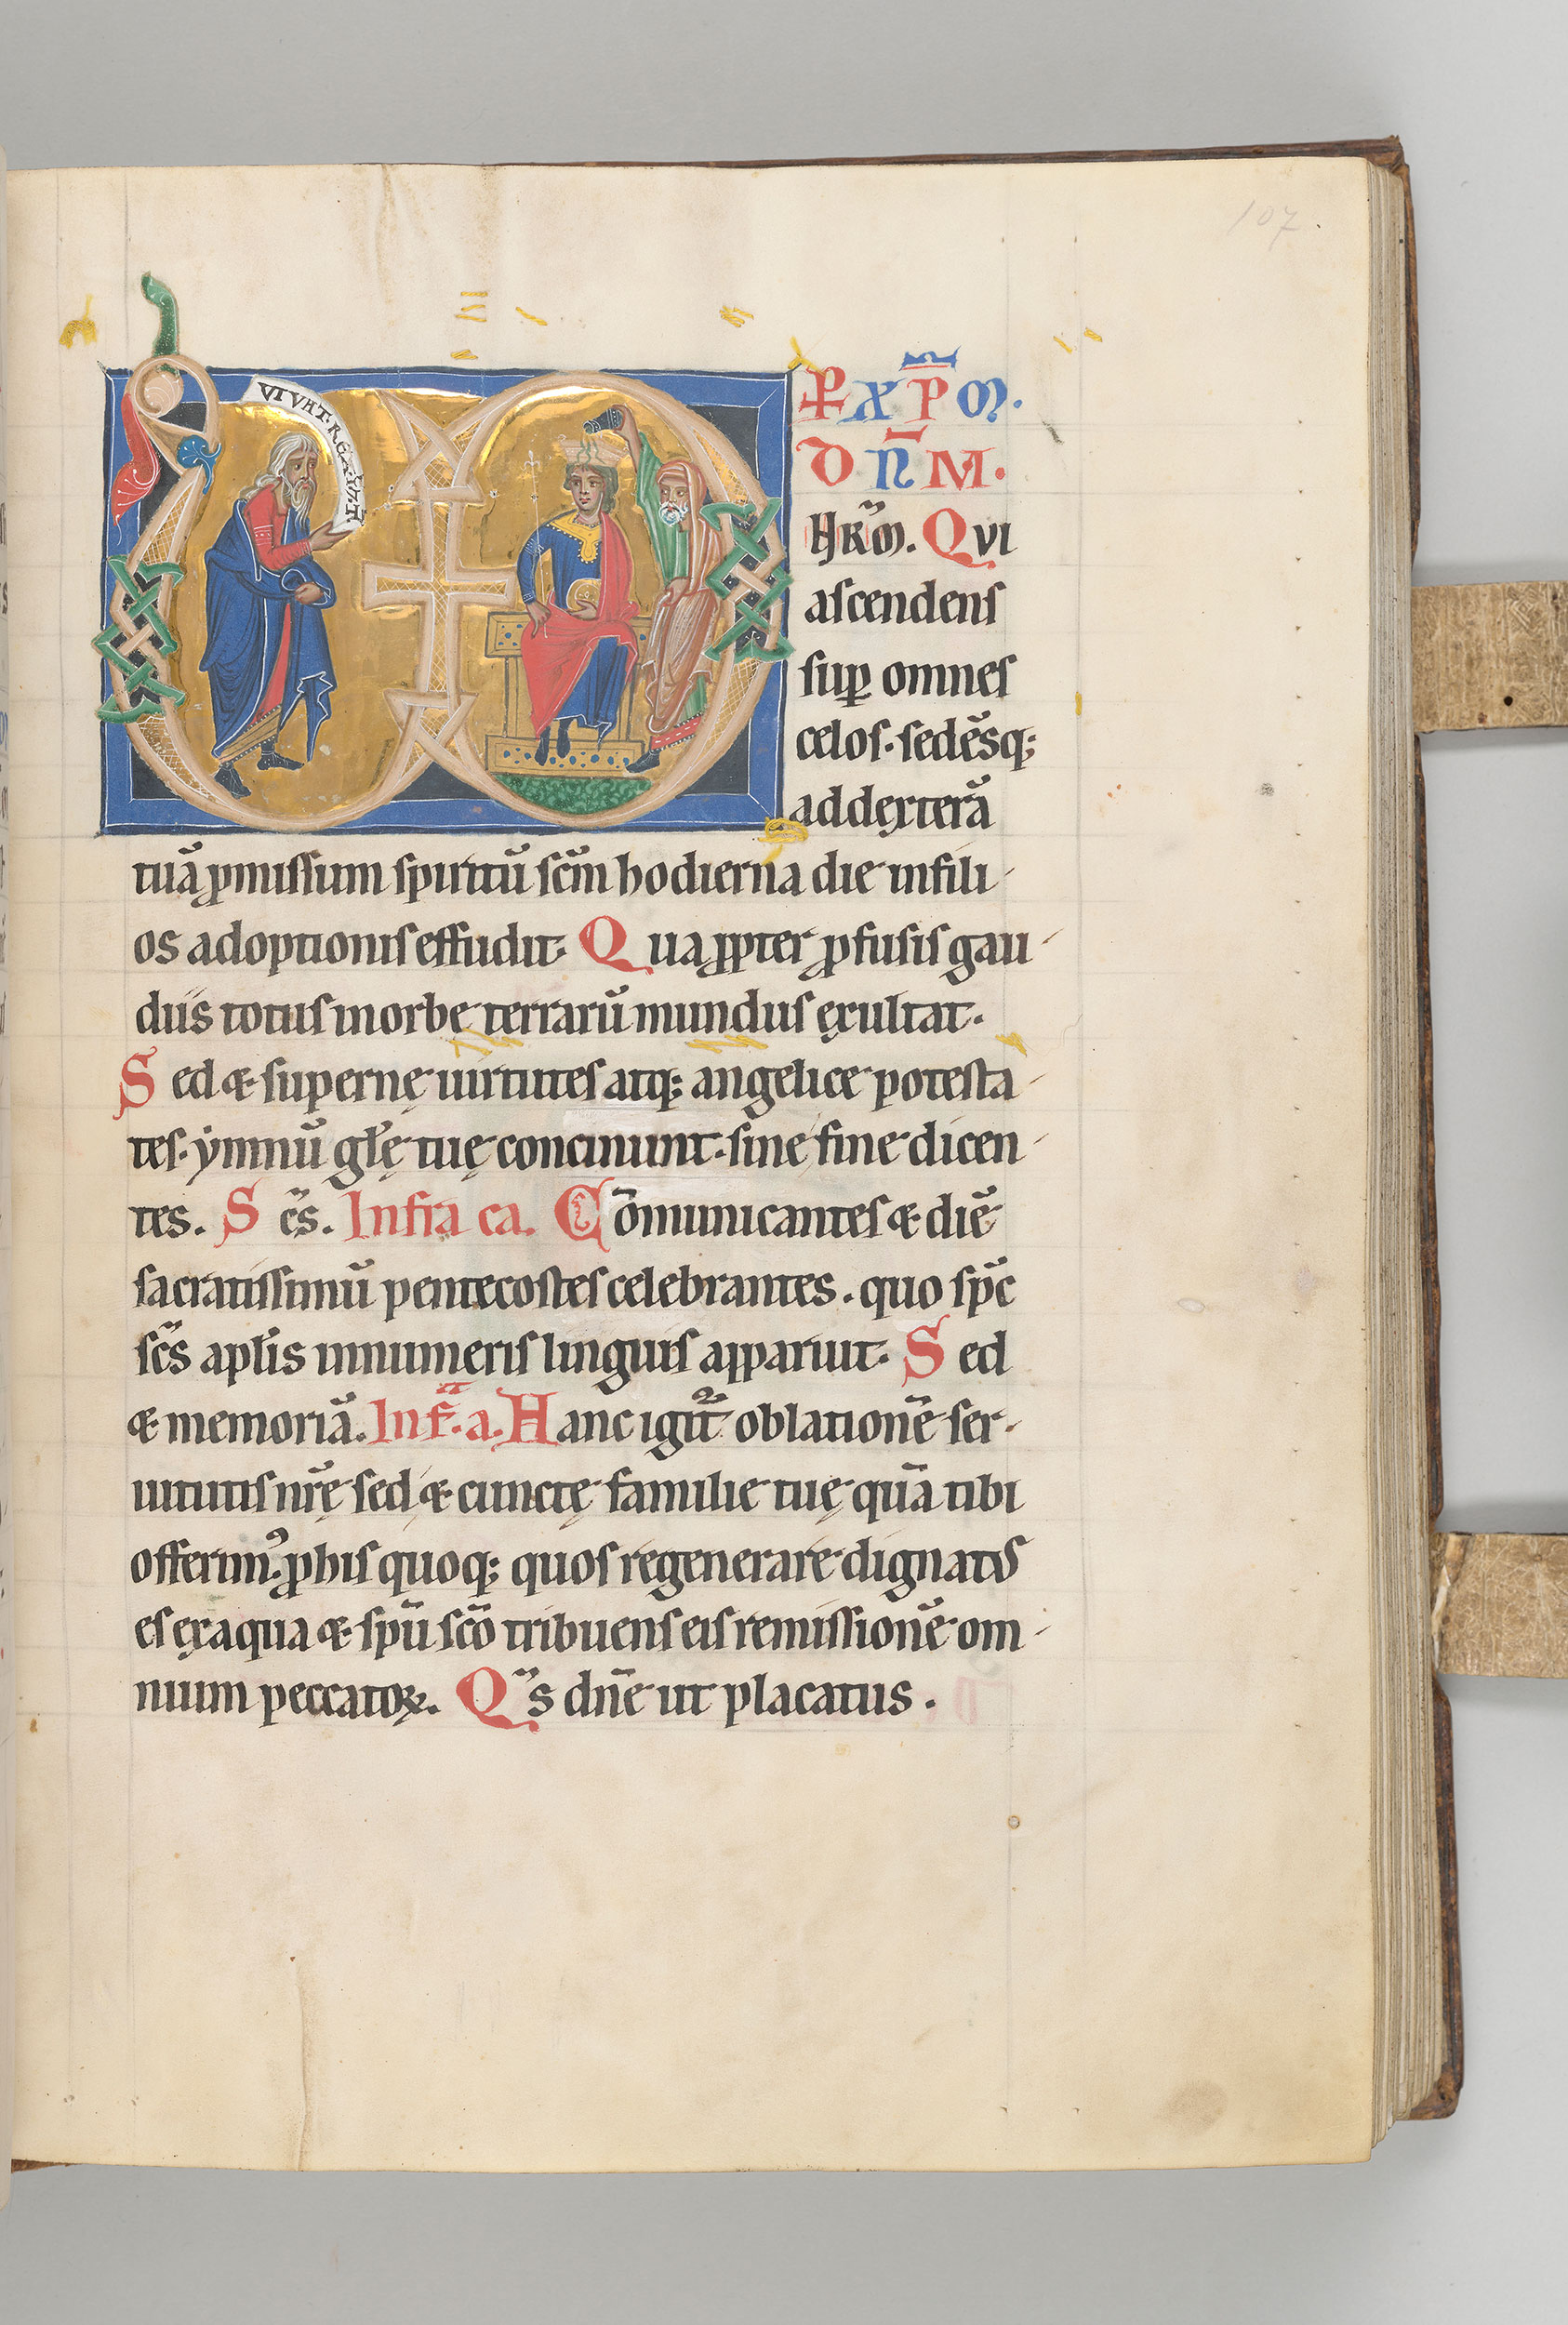 107.
VIVAT. REX. IN. ET.
P XP̄M.
DN̄M.
NR̄M. QVI
aſcendenſ
ſuꝑ omneſ
celoſ. ſedēsq;
addexterā
tuā ꝓmiſſum ſpiritū ſcm̄ hodierna die infili
os adoptioniſ effudit. Qua ꝓpter ꝓfusis gau
diis totuſ inorbe terrarū munduſ exultat.
Sed & ſupernę uirtuteſ atq; angelice poteſta
teſ. ymnū gl̄ę tuę concinunt. ſine fine dicen
tes. Sc̄s. Infra ca. Cōmunicanteſ & diē
ſacratiſſimū pentecoſteſ celebrantes. quo ſpc̄
ſc̄s apl̄is innumeriſ linguiſ apparuit. Sed
& memoriā. Inf̄. a. Hanc igit̄ oblationē ſer
uitutiſ nr̄ę ſed & cunctę familie tuę quā tibi
offerim⁹. ꝓ hiſ quoq; quoſ regenerare dignatuſ
eſ exaqua & ſpū ſcō tribuenſ eiſ remiſſionē om
nium peccatoꝝ. Q̄s dn̄e ut placatus.